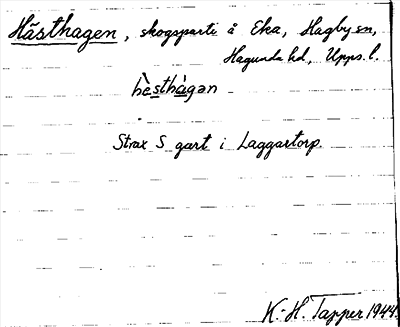 Hästhagen, skogsparti å Eka, Hagby sn,
Hagunda hd, Upps. l.
hèsthàgən
Strax S gart i Laggartorp.
K.-H. Tapper 1944.